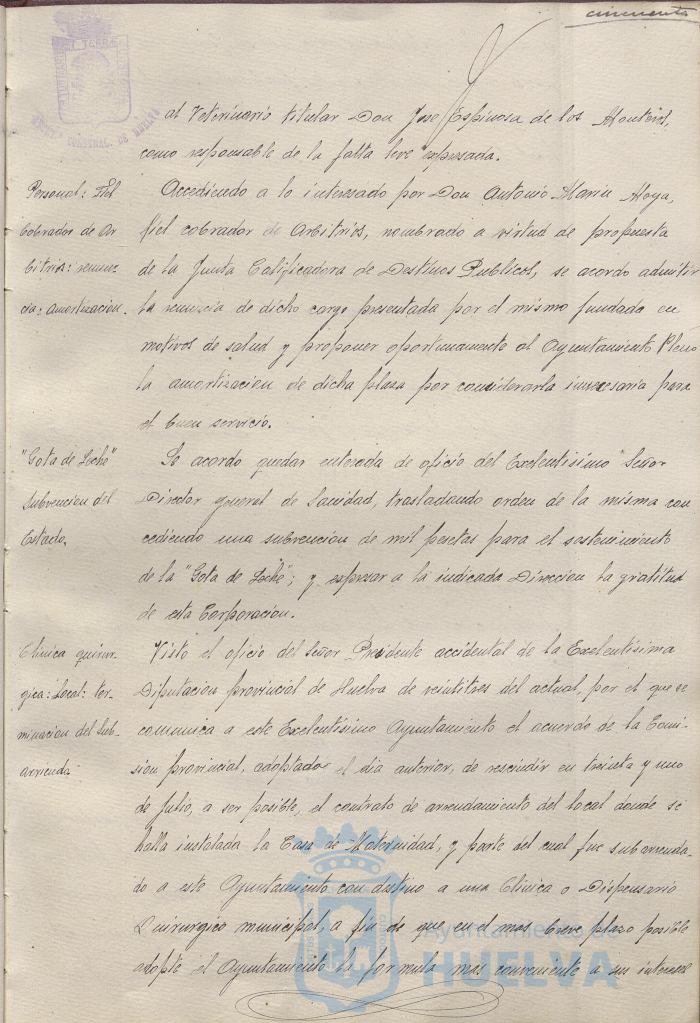 cincuenta
al Veterinario titular Don José Espinosa de los Monteros,
como responsable de la falta leve expresada.
Personal: Fiel
Cobrador de Ar-
bitrios: renun-
cia: amortizacion.
Accediendo a lo interesado por Don Antonio Marin Moya,
fiel cobrador de Arbitrios, nombrado a virtud de propuesta
de la Junta Calificadora de Destinos Publicos, se acordo admitir
la renuncia de dicho cargo presentada por el mismo fundada en
motivos de salud y proponer oportunamente al Ayuntamiento Pleno
la amortizacion de dicha plaza por considerarla innecesaria para
el buen servicio.
"Gota de Leche"
Subvencion del
Estado.
Se acordo quedar enterada de oficio del Exelentisimo Señor
Director general de Sanidad, trasladando orden de la misma con
cediendo una subvencion de mil pesetas para el sostenimiento
de la "Gota de Leche"; y expresar a la indicada Direccion la gratitud
de esta Corporacion.
Clinica quirur-
gica: Local: ter-
minacion del Sub-
arriendo
Visto el oficio del Señor Presidente accidental de la Exelentisima
Diputacion provincial de Huelva de veintitres del actual, por el que se
comunica a este Exelentisimo Ayuntamiento el acuerdo de la Comi-
sion provincial, adoptado el dia anterior, de rescindir en treinta y uno
de Julio, a ser posible, el contrato de arrendamiento del local donde se
halla instalada la Casa de Maternidad, y parte del cual fue subarrenda-
do a este Ayuntamiento con destino a una Clinica o Dispensario
Quirurgico municipal, a fin de que en el mas breve plazo posible
adopte el Ayuntamiento la formula mas conveniente a sus intereses
Ayuntamiento de
HUELVA